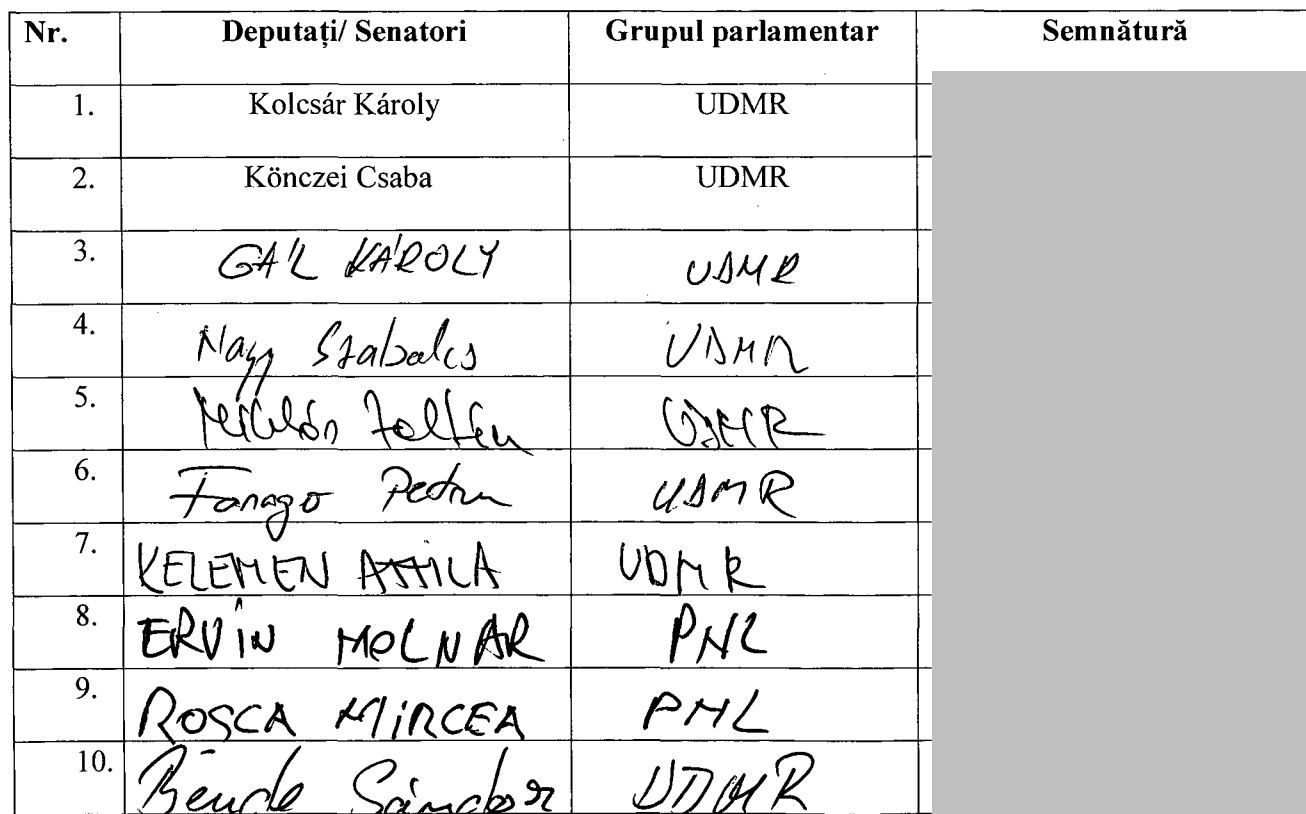 Nr. Deputați/ Senatori Grupul parlamentar Semnătură
1. Kolcsár Károly UDMR
2. Könczei Csaba UDMR
3. GÁL KÁROLY UDMR
4. Nagy Szabolcs UDMR
5. Miklós Zoltán UDMR
6. Farago Petru UDMR
7. KELEMEN ATTILA UDMR
8. ERVIN MOLNAR PNL
9. ROSCA MIRCEA PNL
10. Bende Sándor UDMR